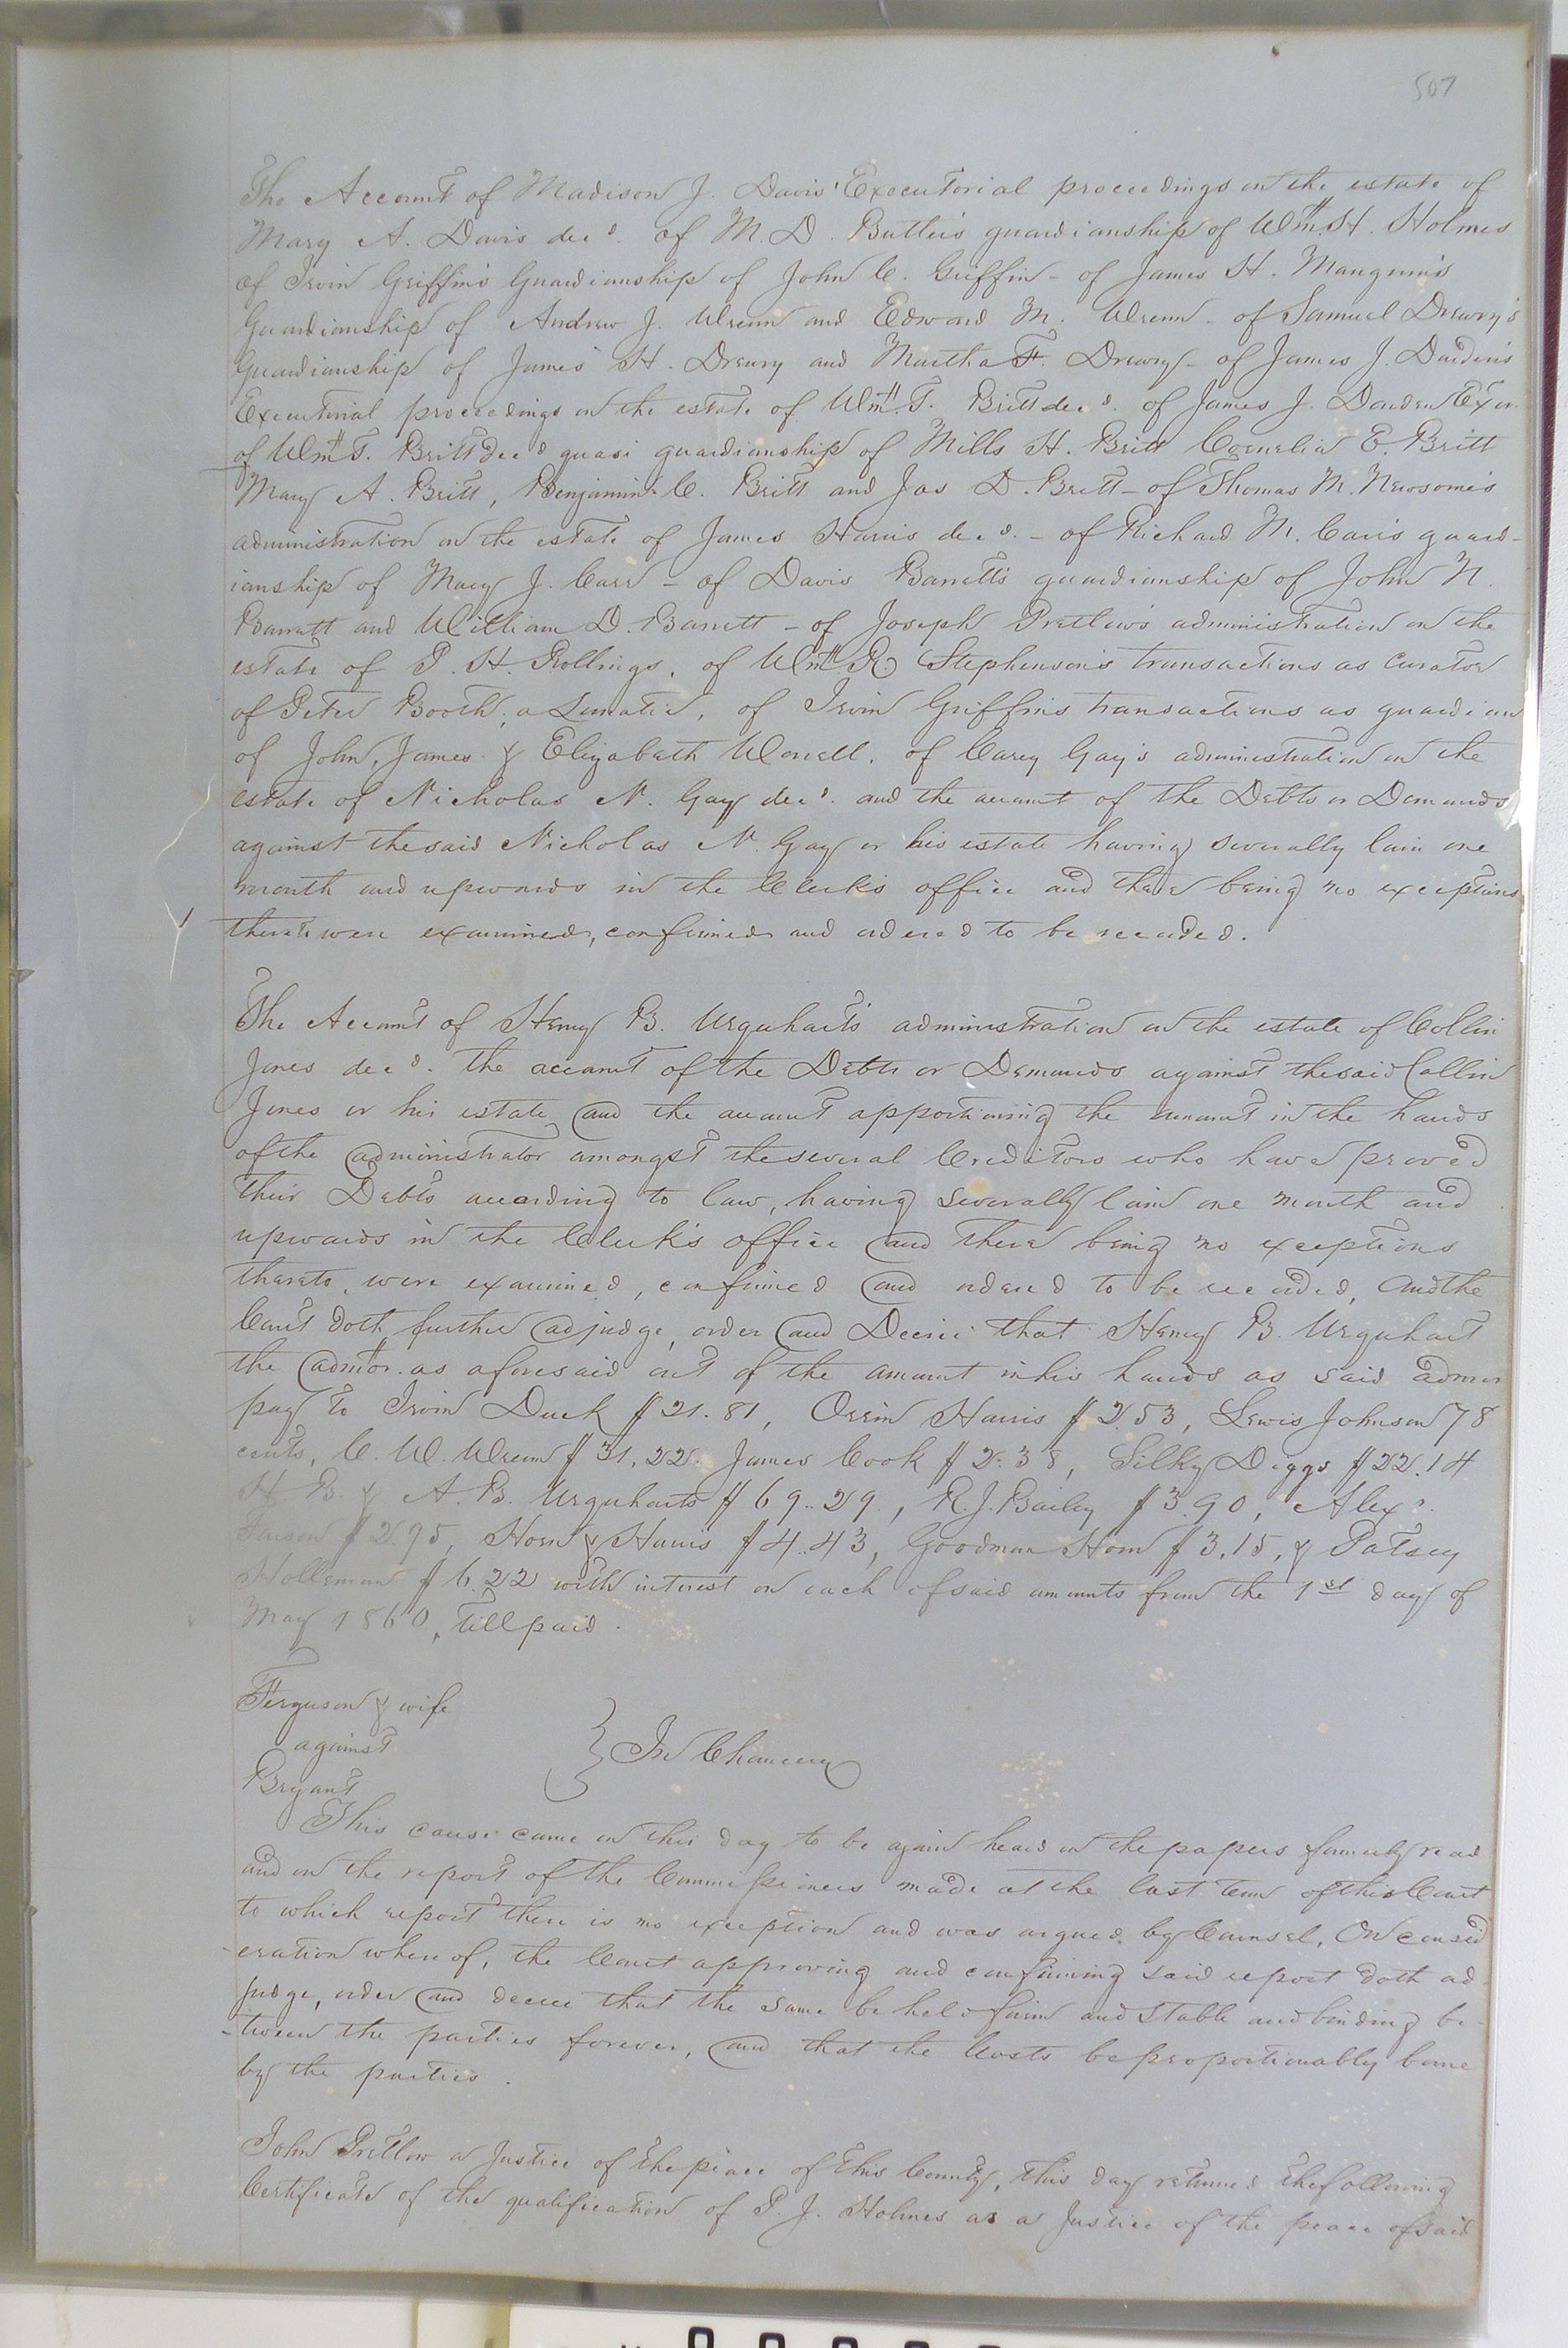 507
The Account of Madison J. Davis' Executorial proceedings on the estate of
Mary A. Davis decd. of M. D. Butler's guardianship of Wm. H. Holmes
of Irvin Griffin's Guardianship of John C. Griffin - of James H. Mangum's
Guardianship of Andrew J. Wrenn and Edward M. Wrenn - of Samuel Drewry's
Guardianship of James H. Drewry and Martha F. Drewry - of James J. Darden's
Executorial proceedings on the estate of Wm. T. Britt decd. of James J. Darden Exor.
of Wm. T. Britt decd quasi guardianship of Mills H. Britt Cornelia E. Britt
Mary A. Britt, Benjamin C. Britt and Jas D. Britt - of Thomas M. Newsome's
administration on the estate of James Harris decd. - of Richard M. Carr's guard-
ianship of Mary J. Carr - of Davis Barrett's guardianship of John N.
Barratt and William D. Barrett - of Joseph Pretlow's administration on the
estate of P. H. Rollings, of Wm. R. Stephenson's transactions as Curator
of Peter Booth, a Lunatic, of Irvin Griffin's transactions as guardian
of John, James & Elizabeth Worrell, of Carey Gay's administration on the
estate of Nicholas N. Gay decd. and the account of the Debts or Demands
against the said Nicholas N. Gay or his estate having severally lain one
month and upwards in the Clerk's office and there being no exceptions
thereto were examined, confirmed and ordered to be recorded.
The Account of Henry B. Urquhart's administration on the estate of Collin
Jones decd. the account of the Debts or Demands against the said Collin
Jones or his estate, and the account apportioning the amount in the hands
of the administrator amongst the several Creditors who have proved
their Debts according to law, having severally lain one month and
upwards in the Clerk's office and there being no exceptions
thereto, were examined, confirmed and ordered to be recorded, and the
Court doth further adjudge, order and Decree that Henry B. Urquhart
the admor. as aforesaid out of the amount in his hands as said admor
pay to Irvin Duck $21.81, Orrin Harris $2.53, Lewis Johnson 78
cents, C. W. Wrenn $31.22. James Cook $2.38, Silky Diggs $22.14
H B. & A. B. Urquharts $69.29., R. J. Bailey $3.90, Alexr.
$2.95, Horn & Harris $4.43, Goodman Horn $3.15, & Patsey
Holleman $6.22 with interest on each of said amounts from the 1st day of
May 1860, till paid.
Ferguson & wife
against
Bryant
} In Chancery
This cause came on this day to be again heard on the papers formerly read
and on the report of the Commissioners made at the last term of this Court
to which report there is no exception and was argued by Counsel, On consid
-eration whereof, the Court approving and confirming said report doth ad
judge, order and decree that the same be held firm and stable and binding be-
-tween the parties forever, and that the Costs be proportionably borne
by the parties.
John Pretlow a Justice of the peace of this County, this day returned the following
Certificate of the qualification of P. J. Holmes as a Justice of the peace of said